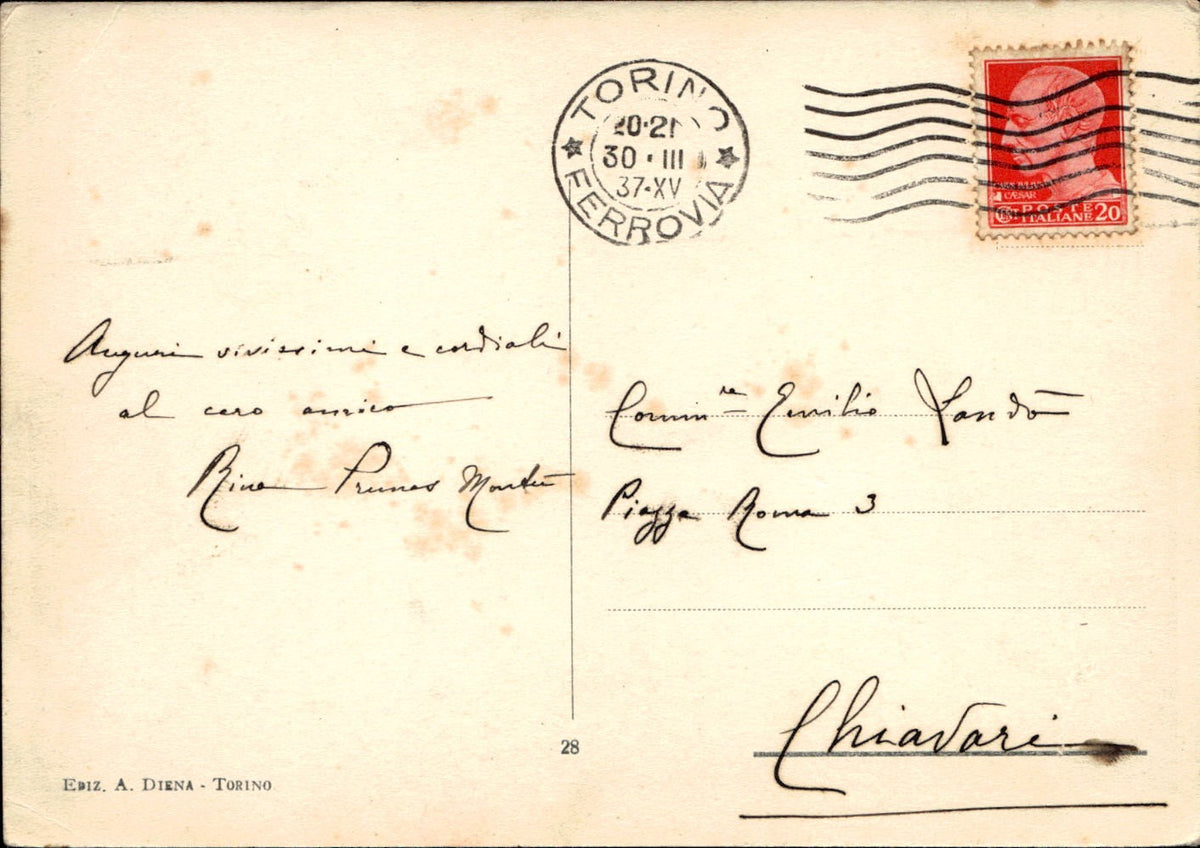 TORINO
20-21
30·III
37·XV
FERROVIA
CÆSAR
POSTE
ITALIANE 20
Auguri vivissimi e cordiali
al caro amico
Rina Prunas Montù
Comm.re Emilio
Piazza Roma 3
Chiavari
28
EDIZ. A. DIENA - TORINO